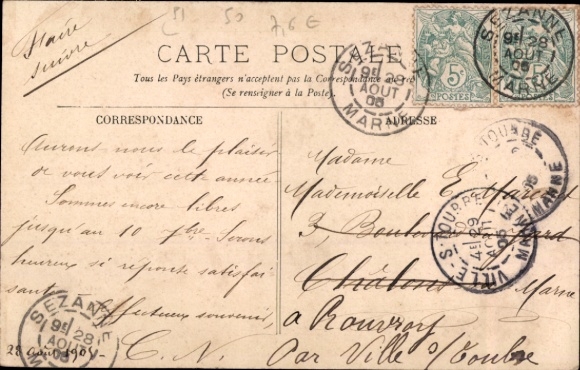 51 50 7,6 €
Faire
suivre
CARTE POSTALE
Tous les Pays étrangers n'acceptent pas la Correspondance au recto
(Se renseigner à la Poste).
5
POSTES
SEZANNE
9E 28
AOUT
05
MARNE
SEZANNE
9E 28
AOUT
05
MARNE
CORRESPONDANCE
ADRESSE
Aurons nous le plaisir
de vous voir cette année
Sommes encore libres
jusqu'au 10 7bre. Serons
heureux si réponse satisfai
sante. Affectueux souvenir,
28 Août 1905. C. N.
Madame
Mademoiselle
3, Boulevard
Châlons Marne
à Rouvroy
Par Ville s/Tourbe
VILLE-S-TOURBE
4E 29
AOUT
05
MARNE
TOURBE
05
MARNE
SEZANNE
9E 28
AOUT
05
MARNE